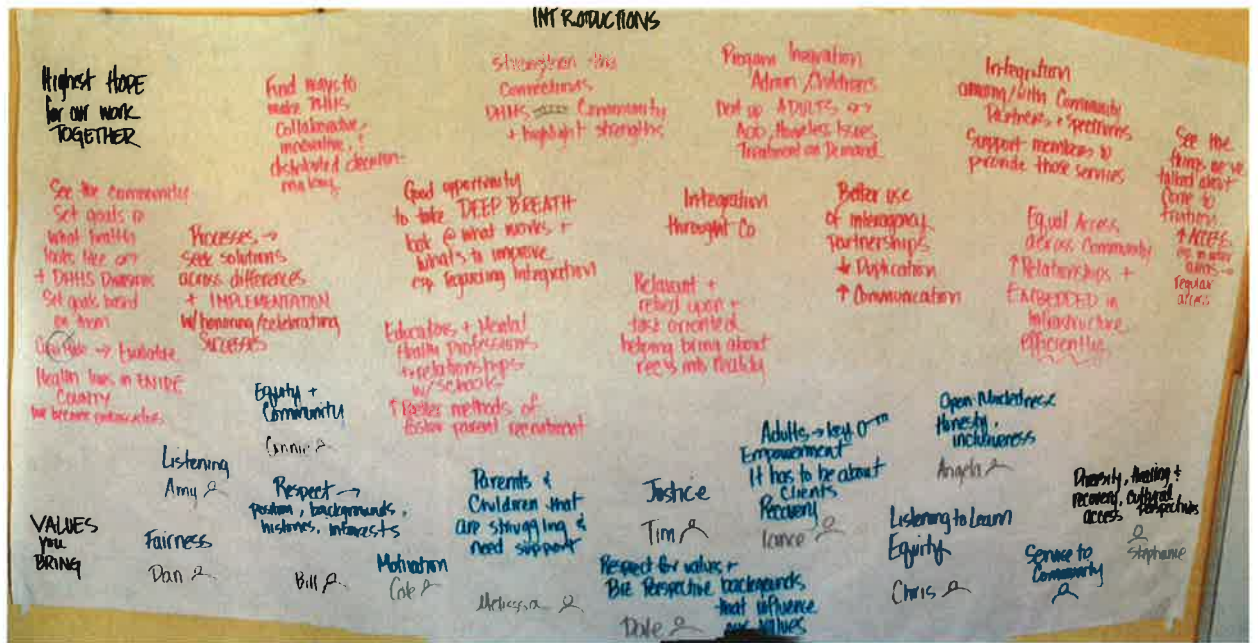 INTRODUCTIONS
Highest HOPE
for our work
TOGETHER
Find ways to
make DHHS
Collaborative,
innovative, &
distributed decision-
making
Strengthen the
Connections
DHHS Community
+ highlight strengths
Program Integration
Admin / Childrens
up ADULTS
AOD, Homeless Issues
Treatment on Demand
Integration
among/with Community
Partners, + Spectrums
Support members to
provide those services
See the
things we've
talked about
come to
fruition.
↑ ACCESS
regular
access
See the community
Set goals
what health
looks like
+ DHHS Divisions
Set goals based
on them
→ Evaluate
Health lives in ENTIRE
COUNTY
we become
Processes →
seek solutions
across differences
+ IMPLEMENTATION
w/honoring/celebrating
Successes
Good opportunity
to take DEEP BREATH
look @ what works +
what's to improve
esp. regarding Integration
Educators + Mental
Health Professions
relationships
w/schools
↑ Better methods of
foster parent recruitment
Integration
throught Co
Relevant +
relied upon +
task oriented
helping bring about
rec's into reality
Better use
of interagency
partnerships
↓ Duplication
↑ Communication
Equal Access
across Community
↑ Relationships +
EMBEDDED in
Infrastructure
efficiently
VALUES
you
BRING
Listening
Amy
Fairness
Dan
Equity +
Community
Connie
Respect →
position, backgrounds,
histories, interests
Bill
Motivation
Cole
Parents &
Children that
are struggling &
need support
Melissa
Justice
Tim
Respect for values +
Big Perspective backgrounds
that influence
our values
Dale
Adults → key
Empowerment
It has to be about
Clients
Recovery
Lance
Open-Mindedness
Honesty,
inclusiveness
Angela
Listening to Learn
Equity
Chris
Service to
Community
Diversity, healing +
recovery, cultural
access perspectives
Stephanie